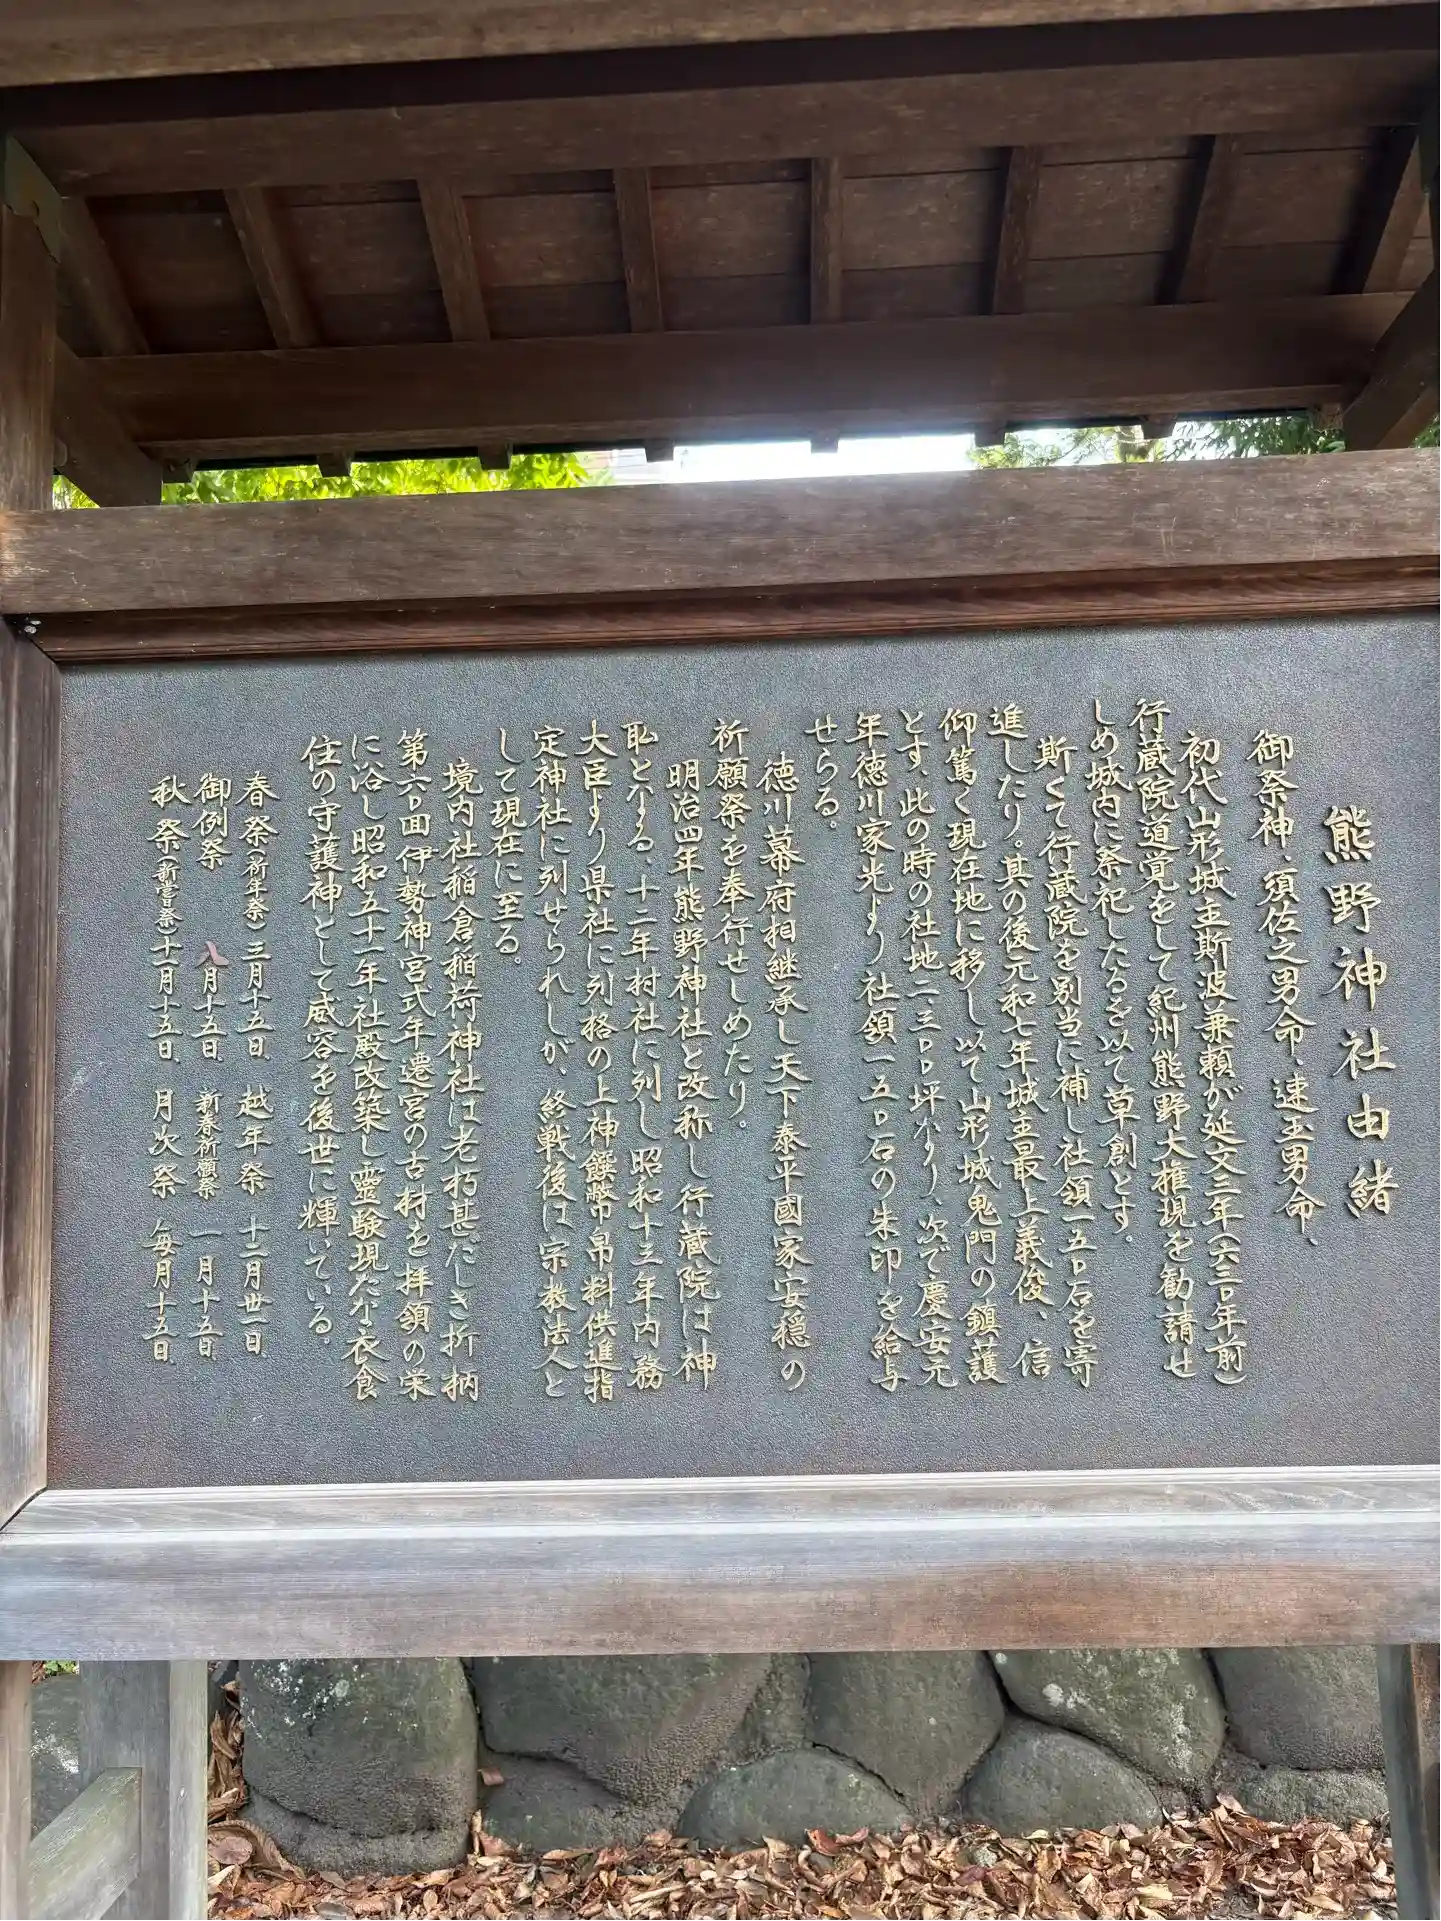 熊野神社由緒
御祭神、須佐之男命、速玉男命、
初代山形城主斯波兼頼が延文三年(六三〇年前)
行蔵院道覚をして紀州熊野大権現を勧請せ
しめ城内に祭祀したるを以て草創とす。
斯くて行蔵院を別当に補し社領一五〇石を寄
進したり。其の後元和七年城主最上義俊、信
仰篤く現在地に移し以て山形城鬼門の鎮護
とす、此の時の社地二、三〇〇坪なり、次で慶安元
年徳川家光より社領一五〇石の朱印を給与
せらる。
徳川幕府相継承し天下泰平國家安穏の
祈願祭を奉行せしめたり。
明治四年熊野神社と改称し行蔵院は神
職となる、十二年村社に列し昭和十三年内務
大臣より県社に列格の上神饌幣帛料供進指
定神社に列せられしが、終戦後は宗教法人と
して現在に至る。
境内社稲倉稲荷神社は老朽甚だしき折柄
第六〇回伊勢神宮式年遷宮の古材を拝領の栄
に浴し昭和五十一年社殿改築し靈験現たな衣食
住の守護神として威容を後世に輝いている。
春祭(祈年祭)三月十五日、越年祭 十二月卅一日
御例祭 八月十五日、新春祈願祭 一月十五日、
秋祭(新嘗祭)十一月十五日、月次祭 毎月十五日、